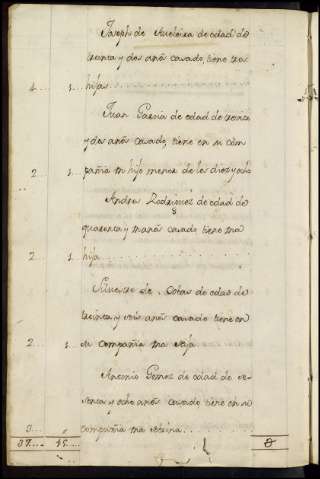 Joseph de de edad de
treinta y dos años casado, tiene tres
4.. 1.. hijas
Juan Garcia de edad de treinta
y dos años casado, tiene en su com
2.. 1.. pañia un hijo menor de los diez y ocho
Andres Rodriguez de edad de
quarenta y un años casado tiene una
2.. 1.. hija
Silvestre de Cotas de edad de
treinta y seis años casado tiene en
2.. 1.. su compañia una
Antonio Gomez de edad de se-
senta y ocho años casado tiene en su
compañia una